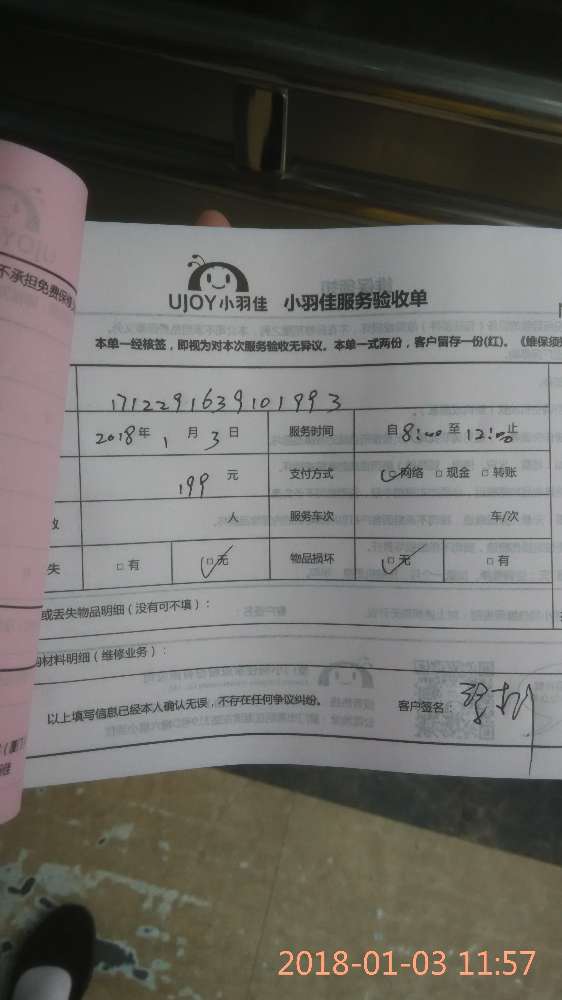 不承担免费保
UJOY小羽佳 小羽佳服务验收单
本单一经核签，即视为对本次服务验收无异议。本单一式两份，客户留存一份(红)。《维保须
1712291639101993
2018年 1 月 3 日 服务时间 自 8:00 至 12:00 止
199 元 支付方式 □网络 □现金 □转账
人 服务车次 车/次
失 □有 □无 物品损坏 □无 □有
或丢失物品明细（没有可不填）：
材料明细（维修业务）：
以上填写信息已经本人确认无误，不存在任何争议纠纷。 客户签名：
2018-01-03 11:57